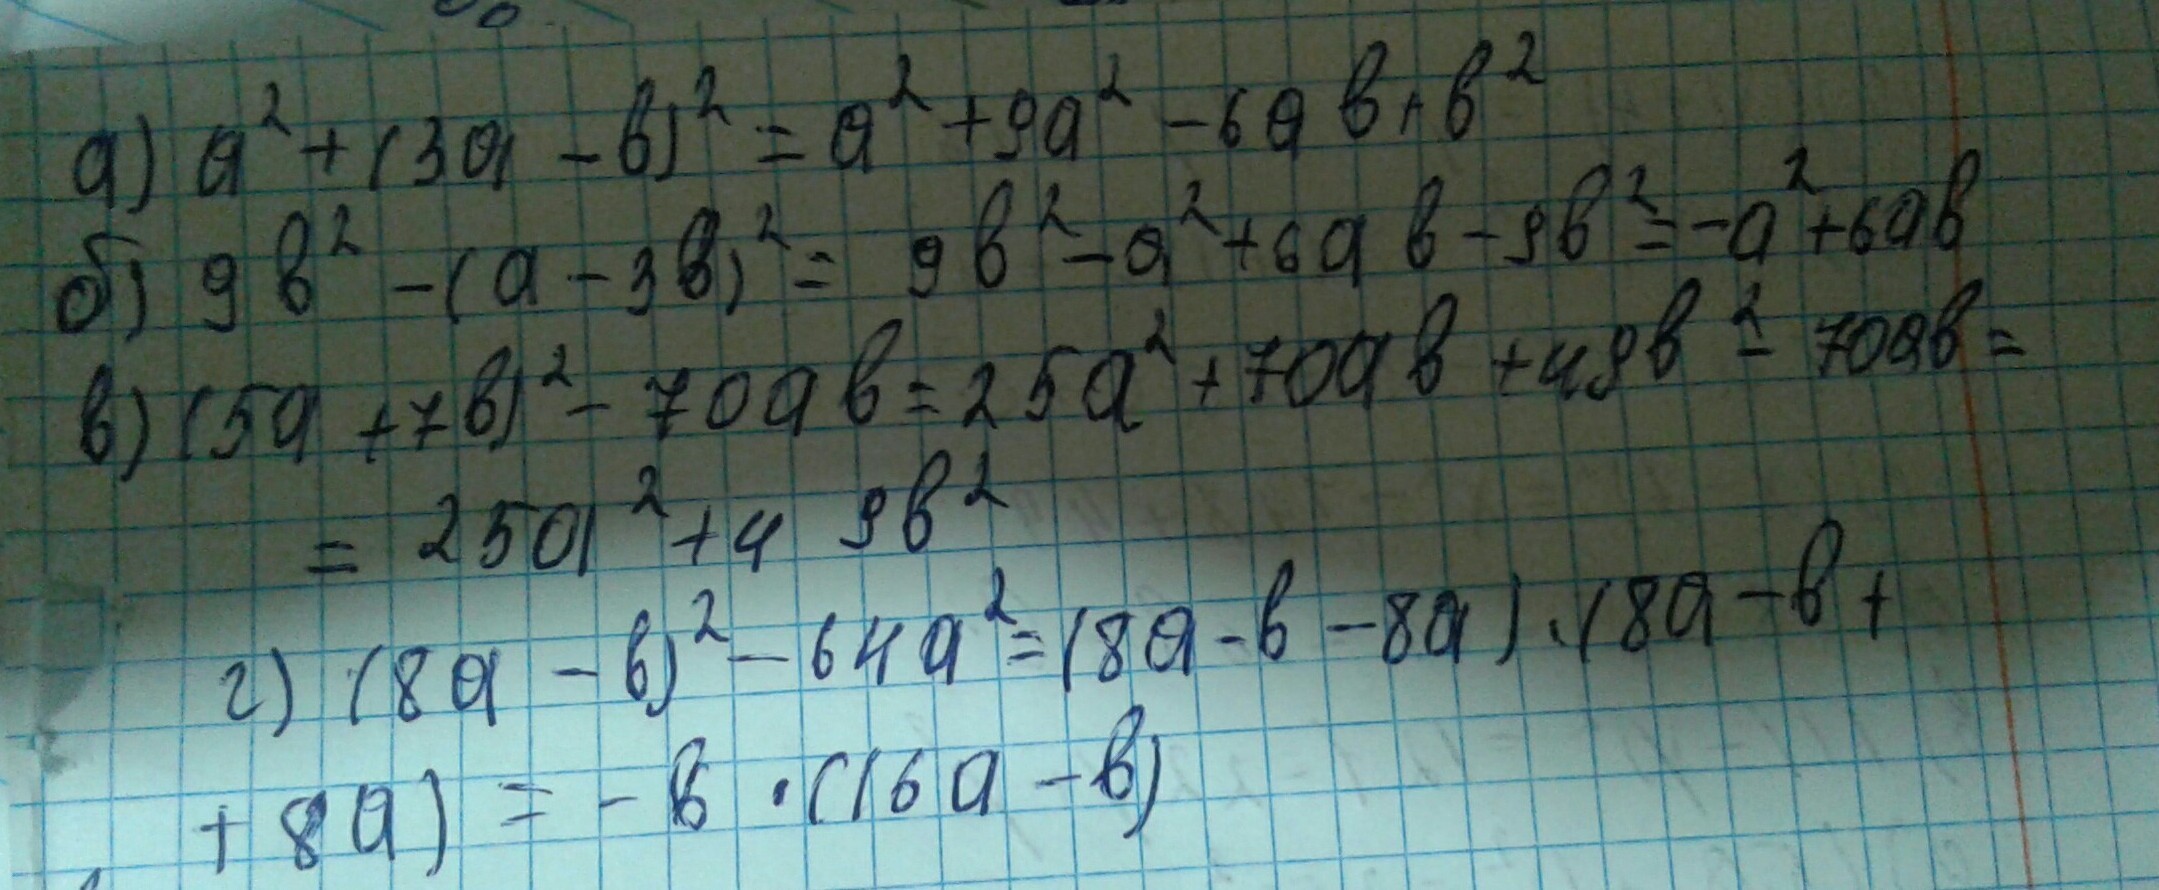 а) a² + (3a - b)² = a² + 9a² - 6ab + b²
б) 9b² - (a - 3b)² = 9b² - a² + 6ab - 9b² = -a² + 6ab
в) (5a + 7b)² - 70ab = 25a² + 70ab + 49b² - 70ab =
= 25a² + 49b²
г) (8a - b)² - 64a² = (8a - b - 8a) · (8a - b +
+ 8a) = -b · (16a - b)